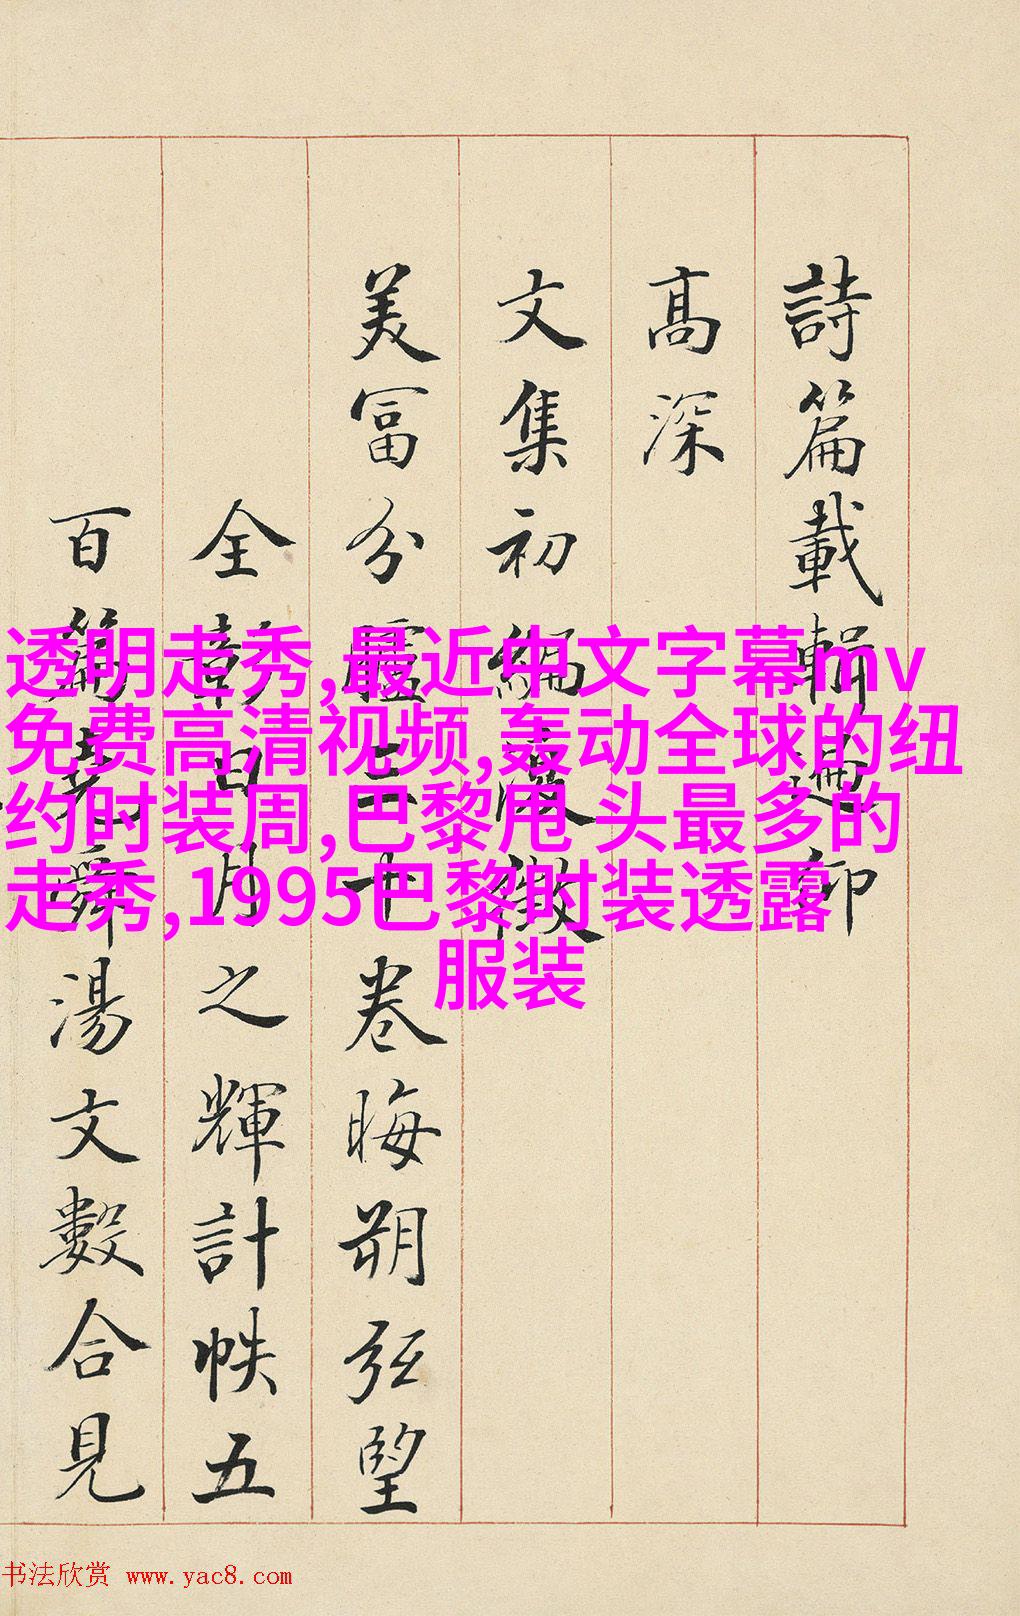 詩篇載輯
高深
文集初編 徵
美富分臚三十卷晦朔弦望
全彰日月之輝計帙五
百篇堯舜湯文數合見
透明走秀,最近中文字幕mv
免费高清视频,轰动全球的纽
约时装周,巴黎甩 头最多的
走秀,1995巴黎时装透露
服装
书法欣赏 www.yac8.com